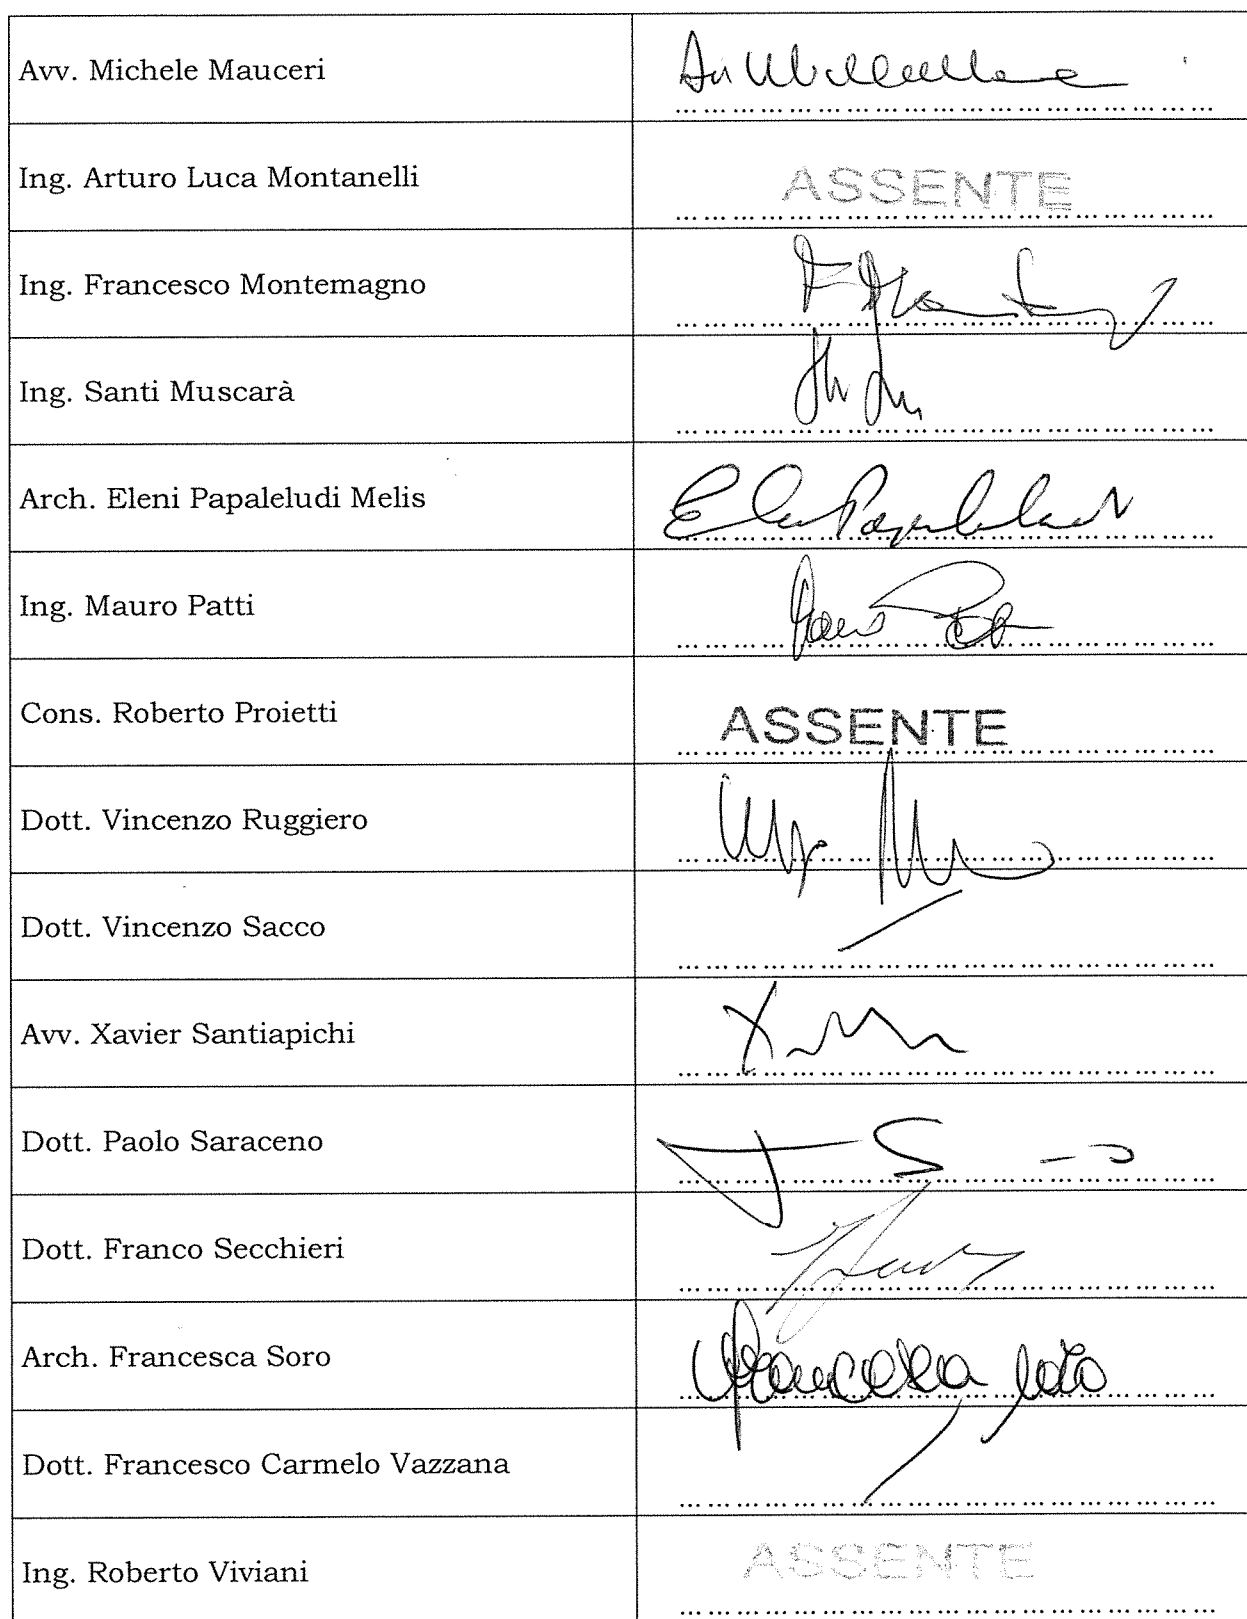 Avv. Michele Mauceri
Ing. Arturo Luca Montanelli
ASSENTE
Ing. Francesco Montemagno
Ing. Santi Muscarà
Arch. Eleni Papaleludi Melis
Ing. Mauro Patti
Cons. Roberto Proietti
ASSENTE
Dott. Vincenzo Ruggiero
Dott. Vincenzo Sacco
Avv. Xavier Santiapichi
Dott. Paolo Saraceno
Dott. Franco Secchieri
Arch. Francesca Soro
Francesca Soro
Dott. Francesco Carmelo Vazzana
Ing. Roberto Viviani
ASSENTE